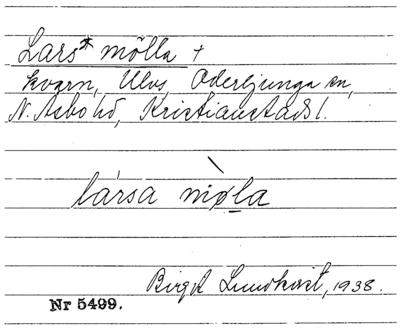 Lars* mölla +
kvarn, Ulvs, Oderljunga sn,
N. Åsbo hd, Kristianstads l.
lársa mø̀la
Birgit Lundkvist, 1938.
Nr 5499.